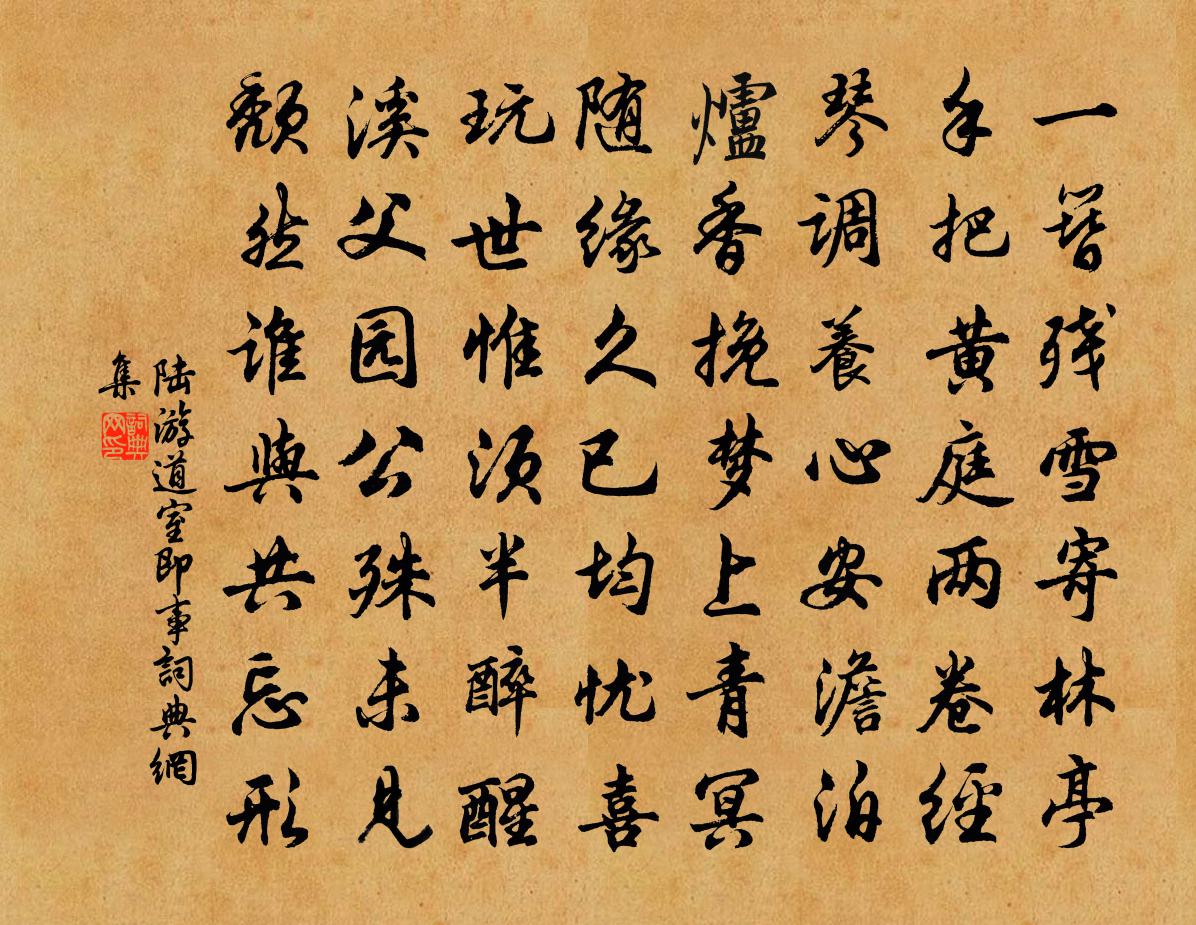 一簪残雪寄林亭
手把黄庭两卷經
琴調養心安澹泊
爐香挽梦上青冥
随缘久已均忧喜
玩世惟须半醉醒
溪父园公殊未見
頹然谁與共忘形
陆游道室即事詞典網
集
詞典
网印